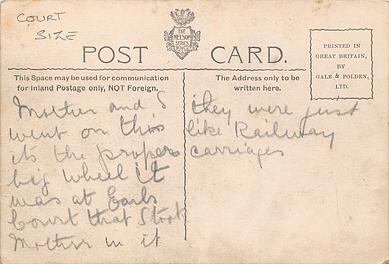 COURT
SIZE
THE
NELSON
SERIES
POST CARD.
PRINTED IN
GREAT BRITAIN,
BY
GALE & POLDEN,
LTD.
This Space may be used for communication
for Inland Postage only, NOT Foreign.
The Address only to be
written here.
Mother and I
went on this
its the proper
big wheel it
was at Earls
Court that Stock
Mother in it
they were just
like Railway
carriages